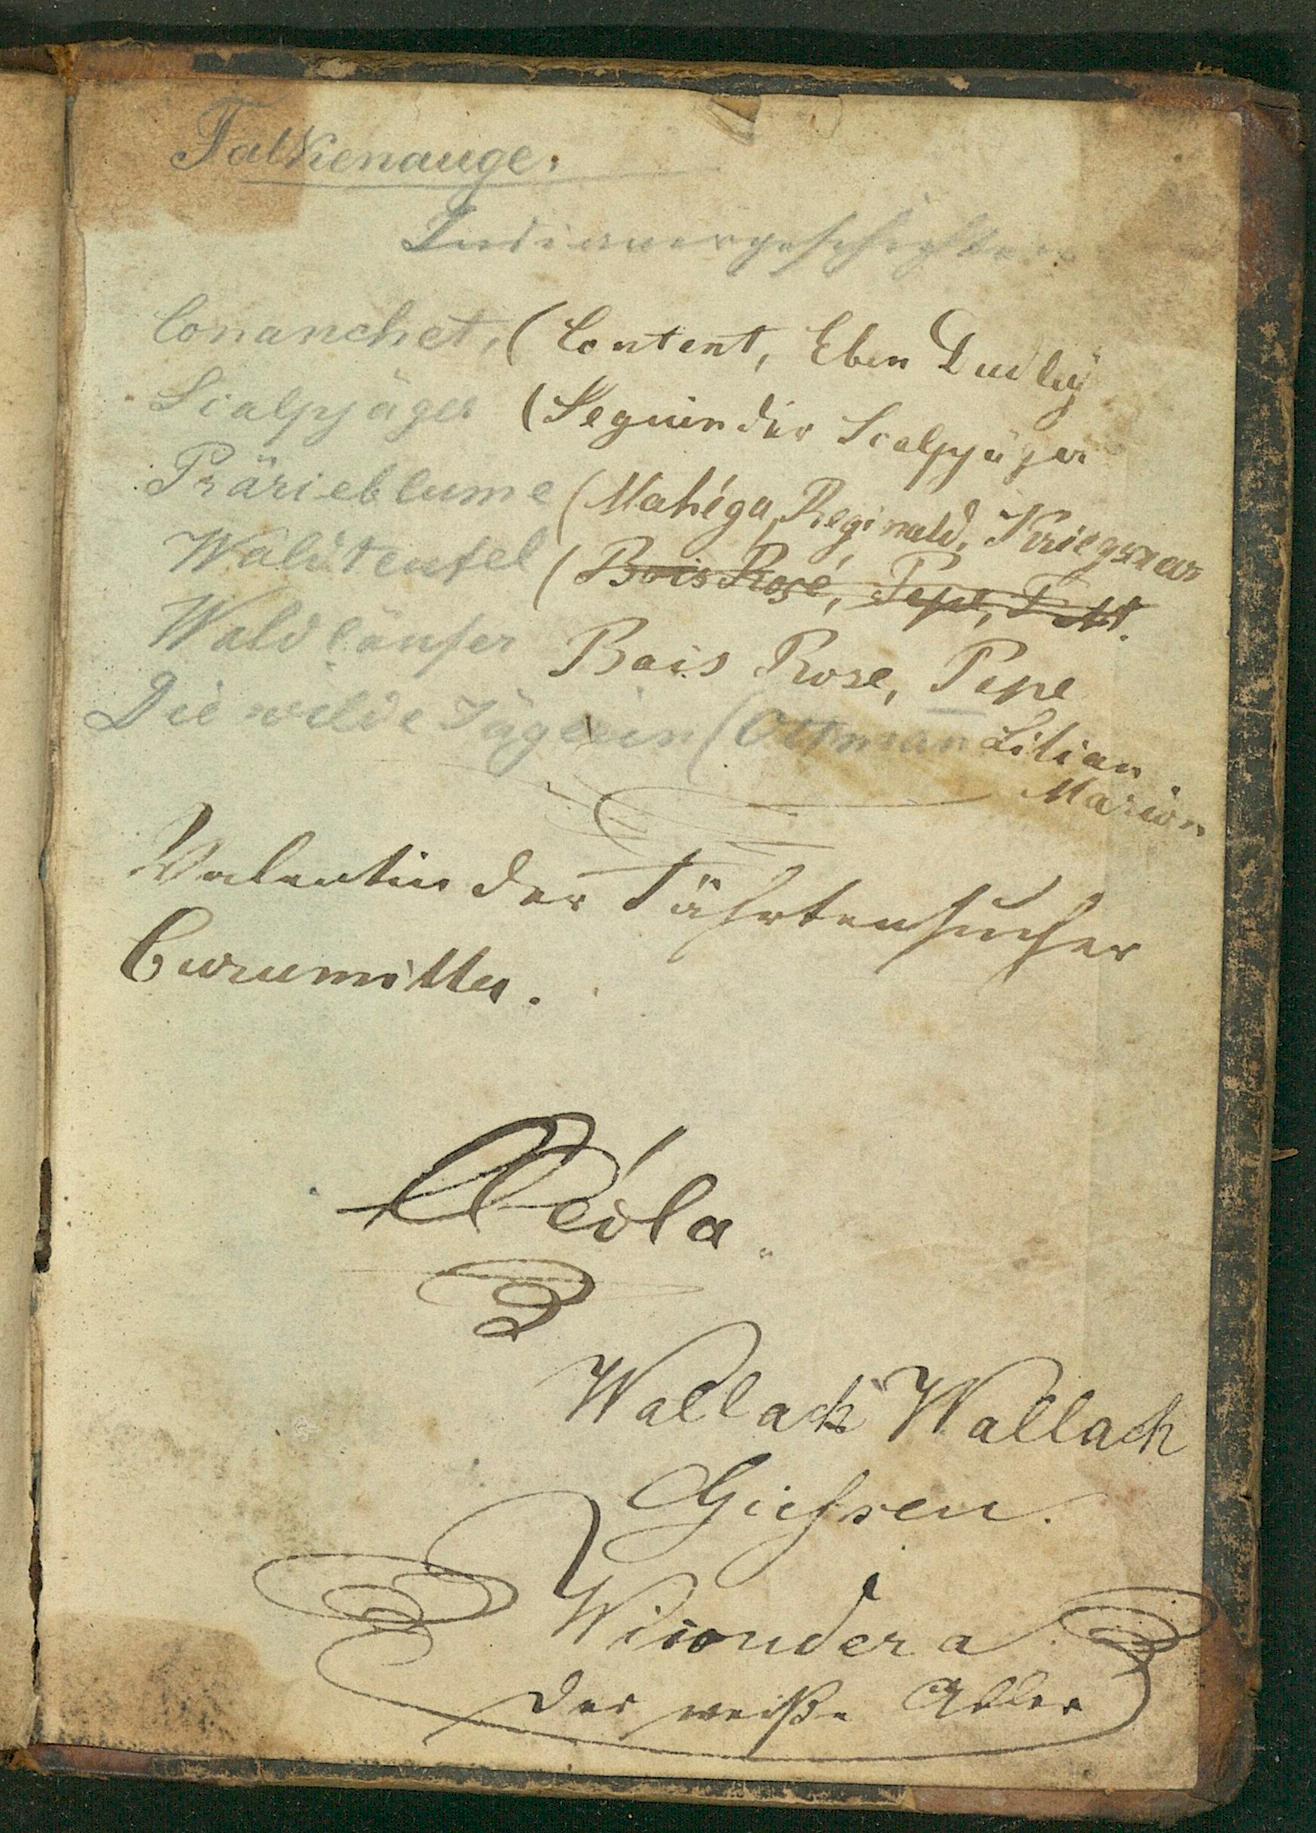 Falkenauge.
Indianergeschichten
Conanchet, (Content, Eben Dudley
Scalpjäger (Seguin der Scalpjäger
Prärieblume (Mahéga, Reginald, Kriegsrar
Waldteufel (Bois Rosé, Pepe,
Waldläufer Bois Rose, Pepe
Die wilde Jägerin (Ottman Lilian
Marion
Valentin der Fährtensucher
Curumilla.
Oeola
Wallach Wallach
Giessen.
Wiondera
der weiße Adler